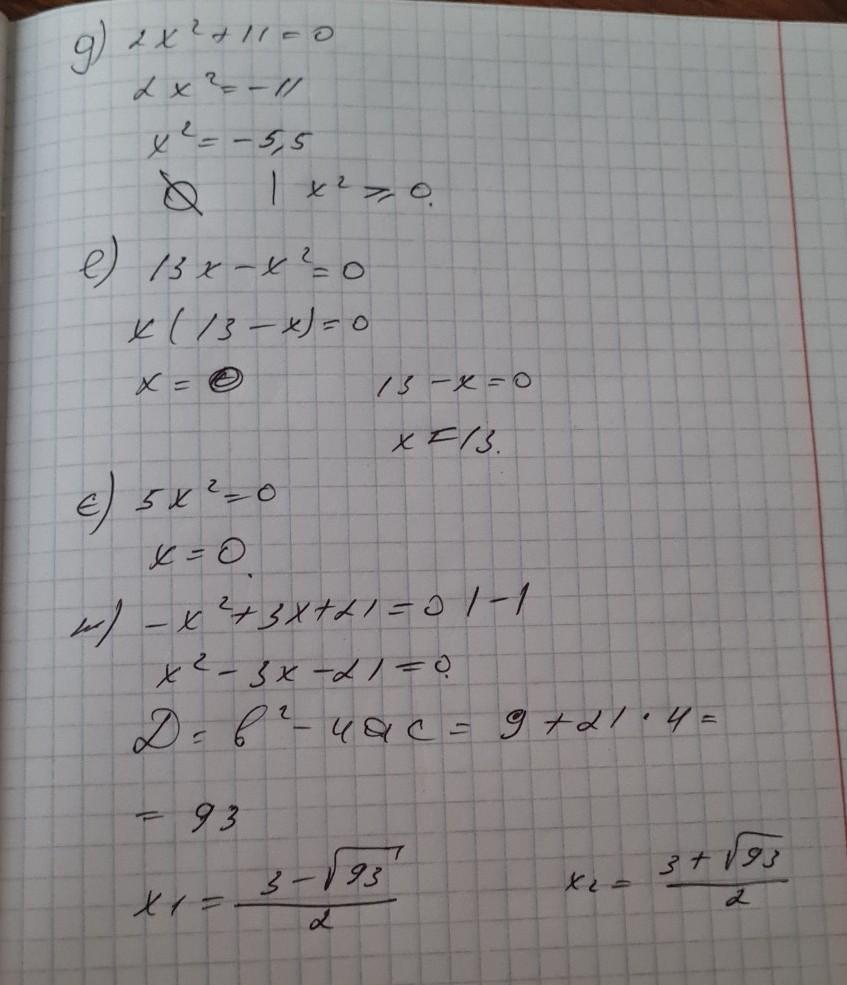 д) 2x²+11=0
2x²=-11
x²=-5,5
∅ | x²⩾0.
е) 13x-x²=0
x(13-x)=0
x=0 13-x=0
x=13.
є) 5x²=0
x=0.
ж) -x²+3x+21=0 |-1
x²-3x-21=0.
D=b²-4ac=9+21·4=
=93
x₁=\frac{3-\sqrt{93}}{2} x₂=\frac{3+\sqrt{93}}{2}